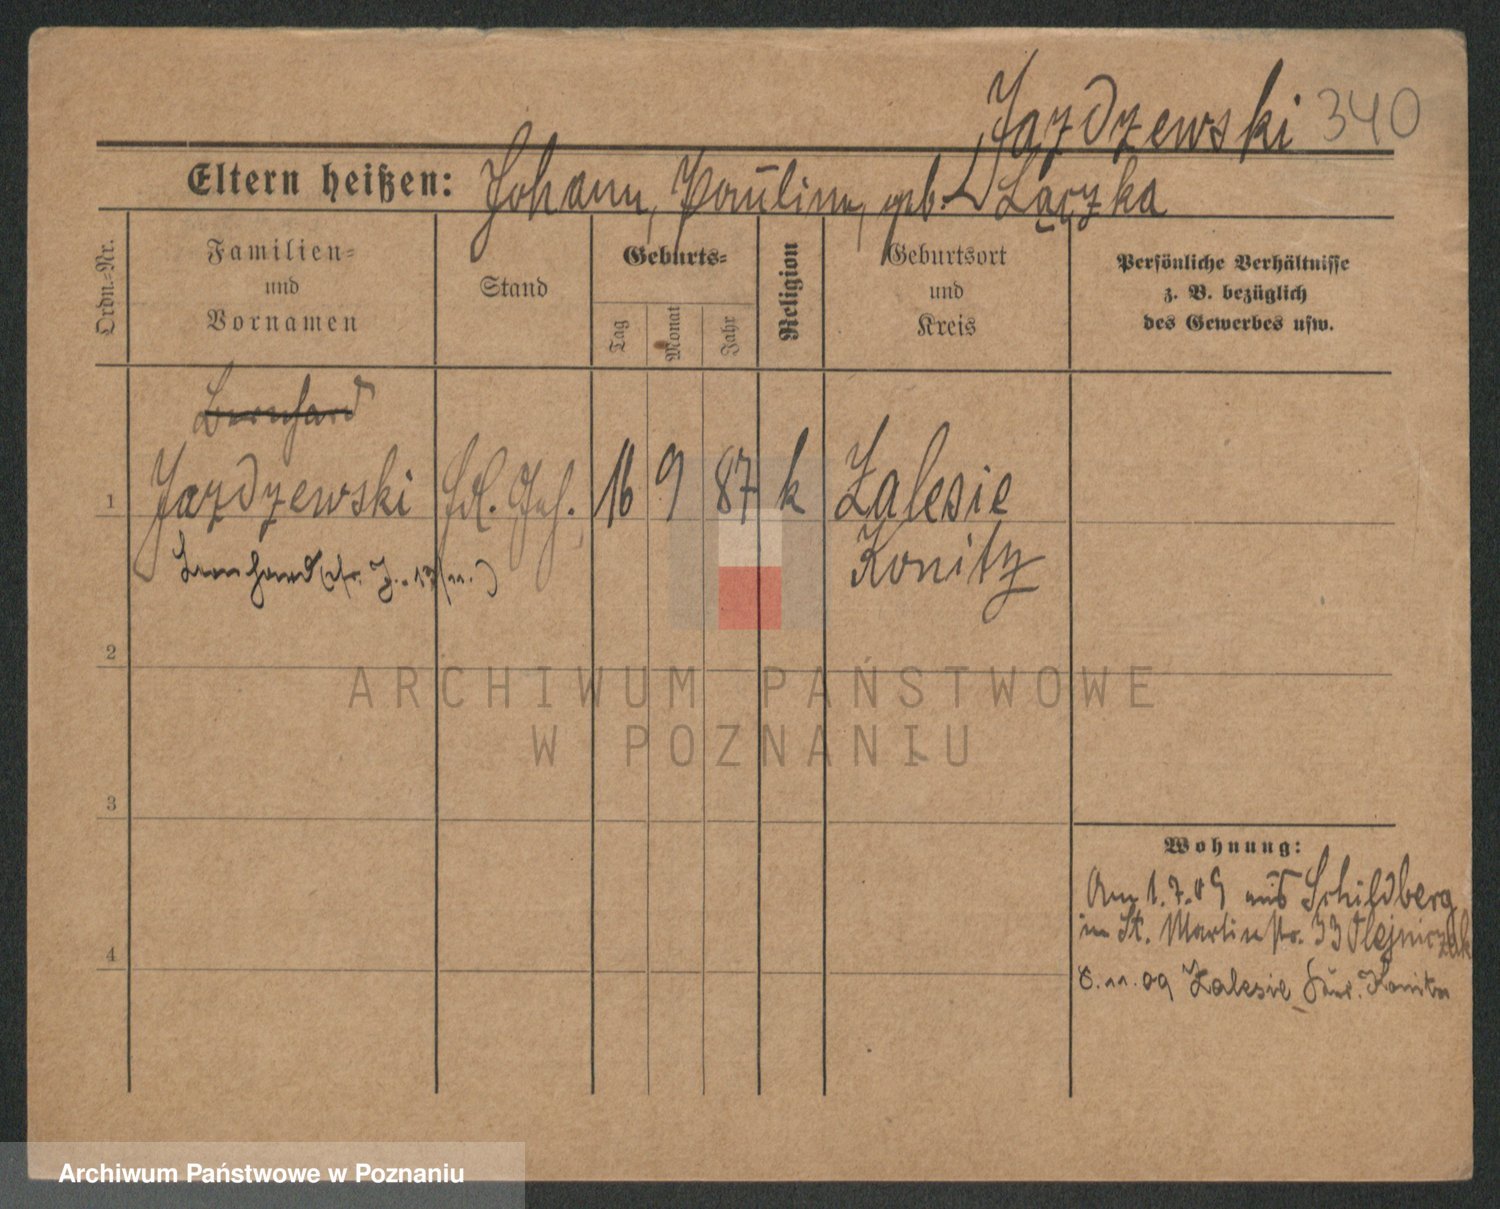 Jazdzewski 340
Eltern heißen: Johann, Paulina, geb. Łączka
Ordn.-Nr.
Familien-
und
Vornamen
Stand
Geburts-
Tag
Monat
Jahr
Religion
Geburtsort
und
Kreis
Persönliche Verhältnisse
z. B. bezüglich
des Gewerbes usw.
Bernhard
1 Jazdzewski 16 9 87 k Zalesie
Konitz
Bernhard
2
ARCHIWUM PAŃSTWOWE
W POZNANIU
3
Wohnung:
Am 1.7.09 aus Schildberg
in St. Martinstr. 33 Olejniczak
4
8.11.09 Zalesie
Archiwum Państwowe w Poznaniu